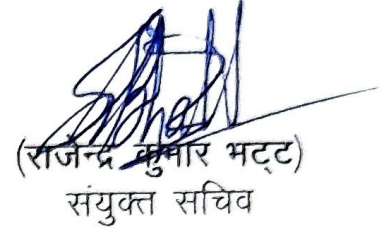 (राजेन्द्र कुमार भट्ट)
संयुक्त सचिव